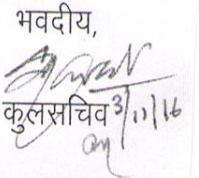 भवदीय,
कुलसचिव 3/11/16